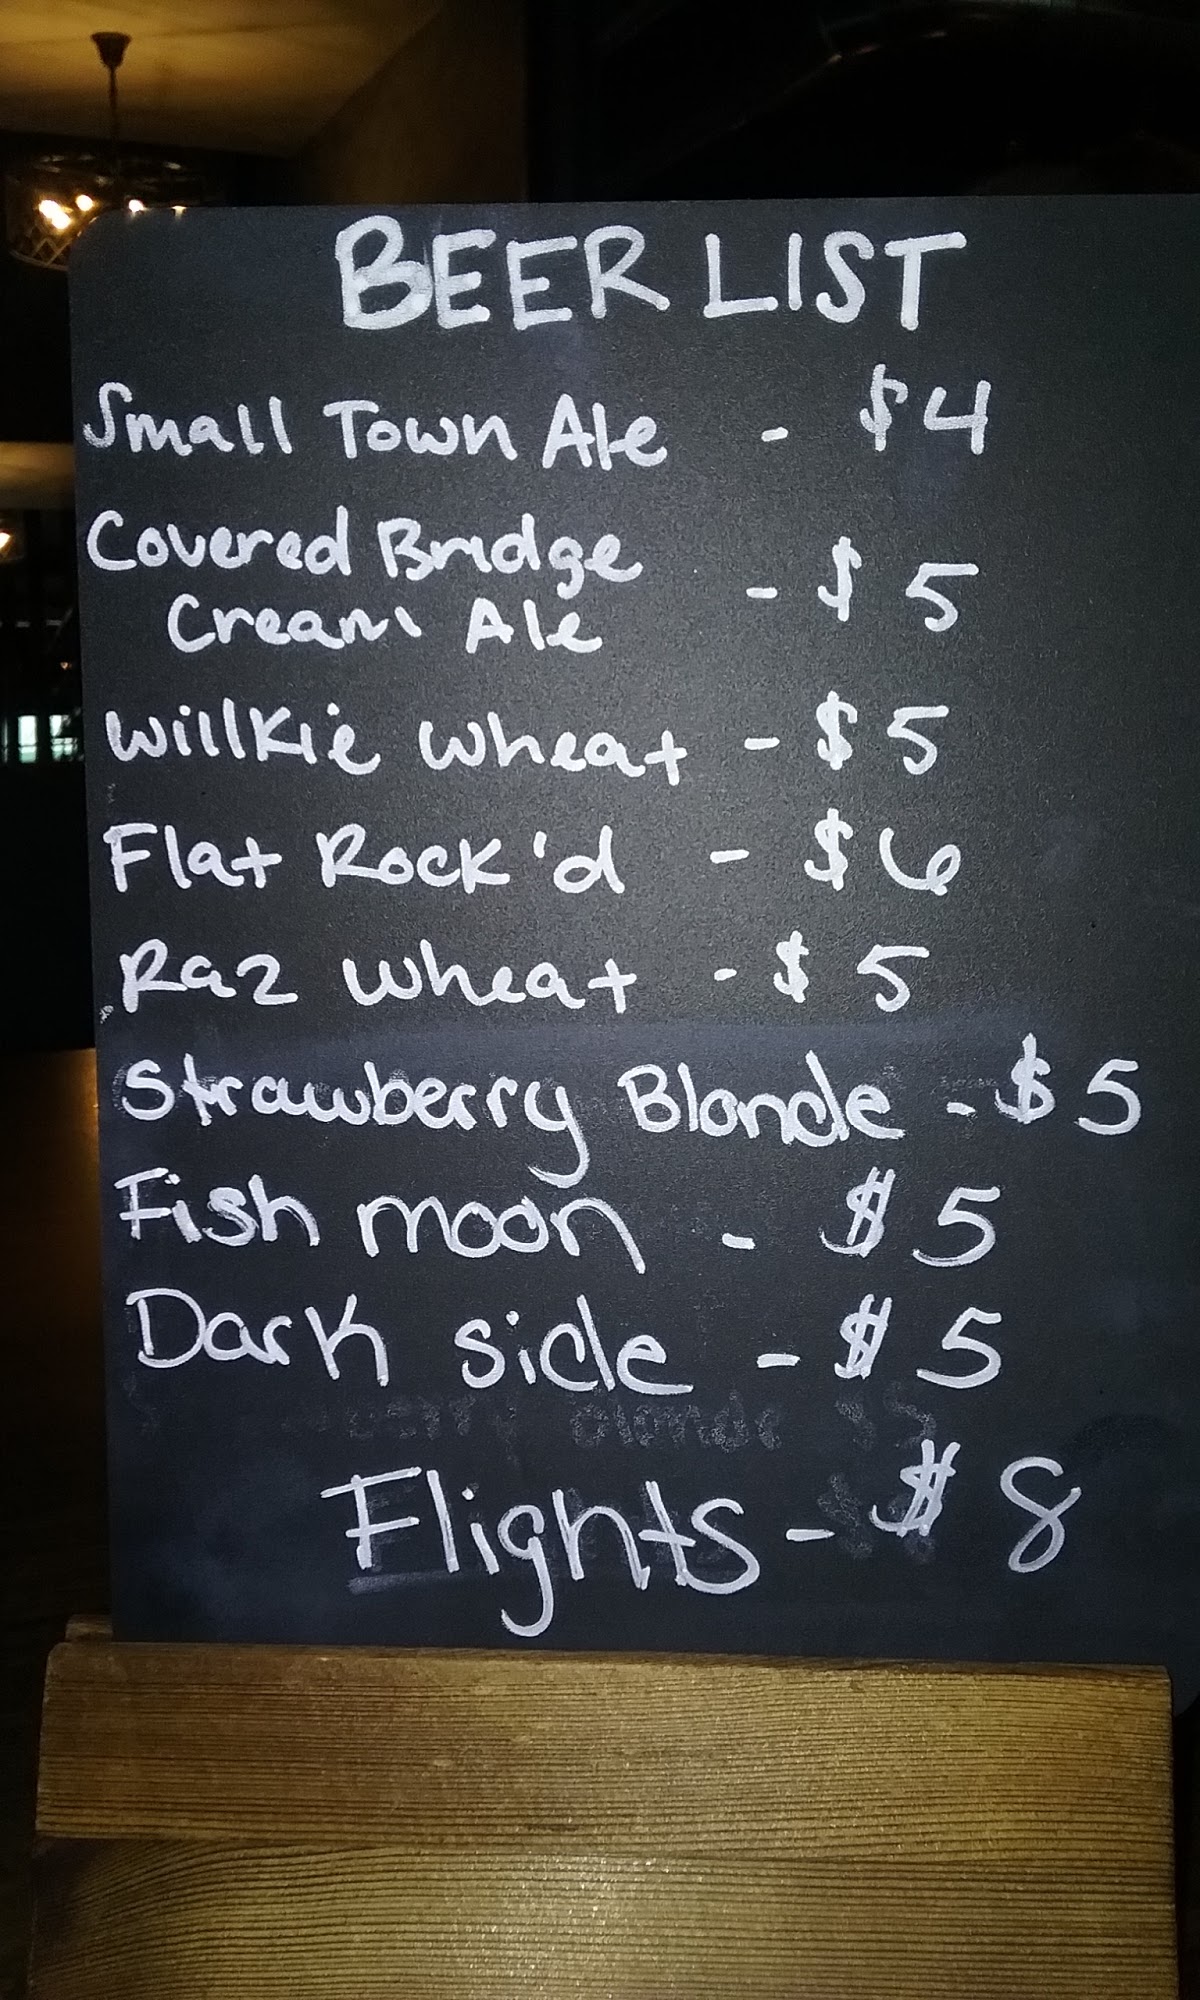 BEER LIST
Small Town Ale - $4
Covered Bridge
Cream Ale - $5
Willkie Wheat - $5
Flat Rock'd - $6
Raz Wheat - $5
Strawberry Blonde - $5
Fish moon - $5
Dark side - $5
Flights - $8